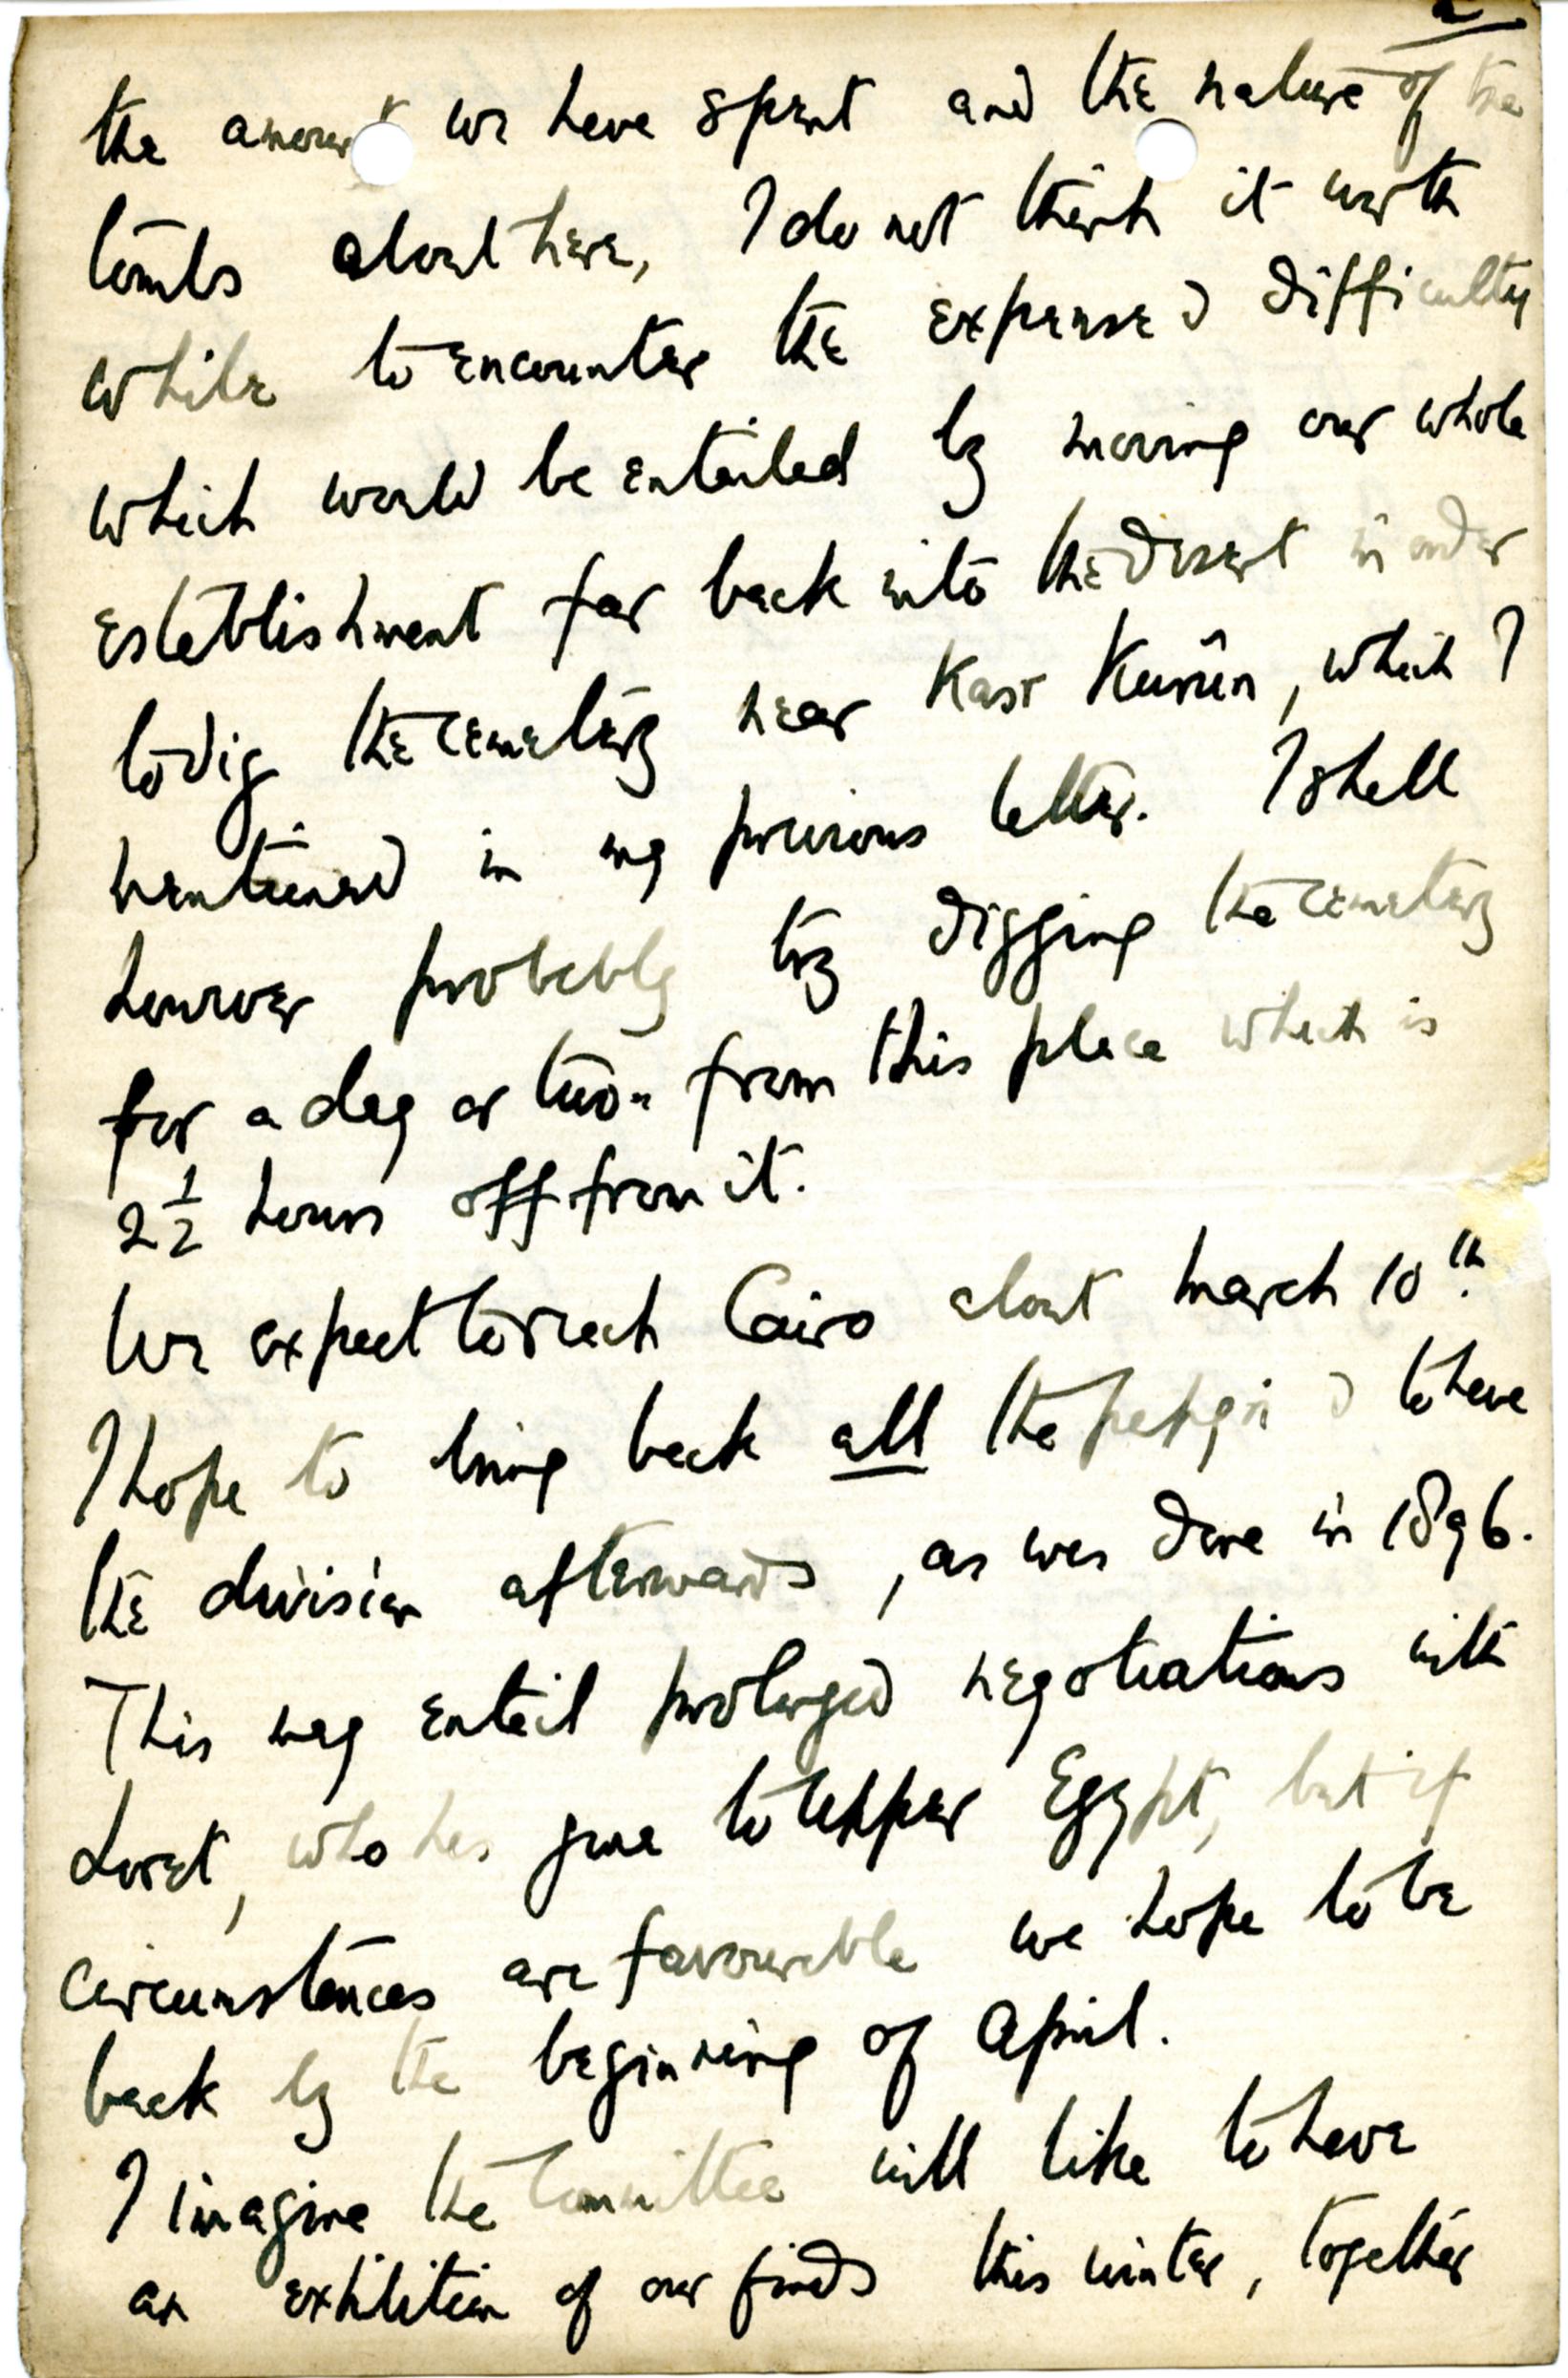 2
the amount we have spent and the nature of the
tombs about here, I do not think it worth
while to encounter the expense & difficulty
which would be entailed by moving our whole
establishment far back into the desert in order
to dig the cemetery near Kasr Kurûn, which I
mentioned in my previous letter. I shall
however probably try digging the cemetery
for a day or two from this place which is
2½ hours off from it.
We expect to reach Cairo about March 10th.
I hope to bring back all the papyri & to have
the division afterwards, as was done in 1896.
This may entail prolonged negotiations with
Loret, who has gone to Upper Egypt, but if
circumstances are favourable we hope to be
back by the beginning of April.
I imagine the Committee will like to have
an exhibition of our finds this winter, together